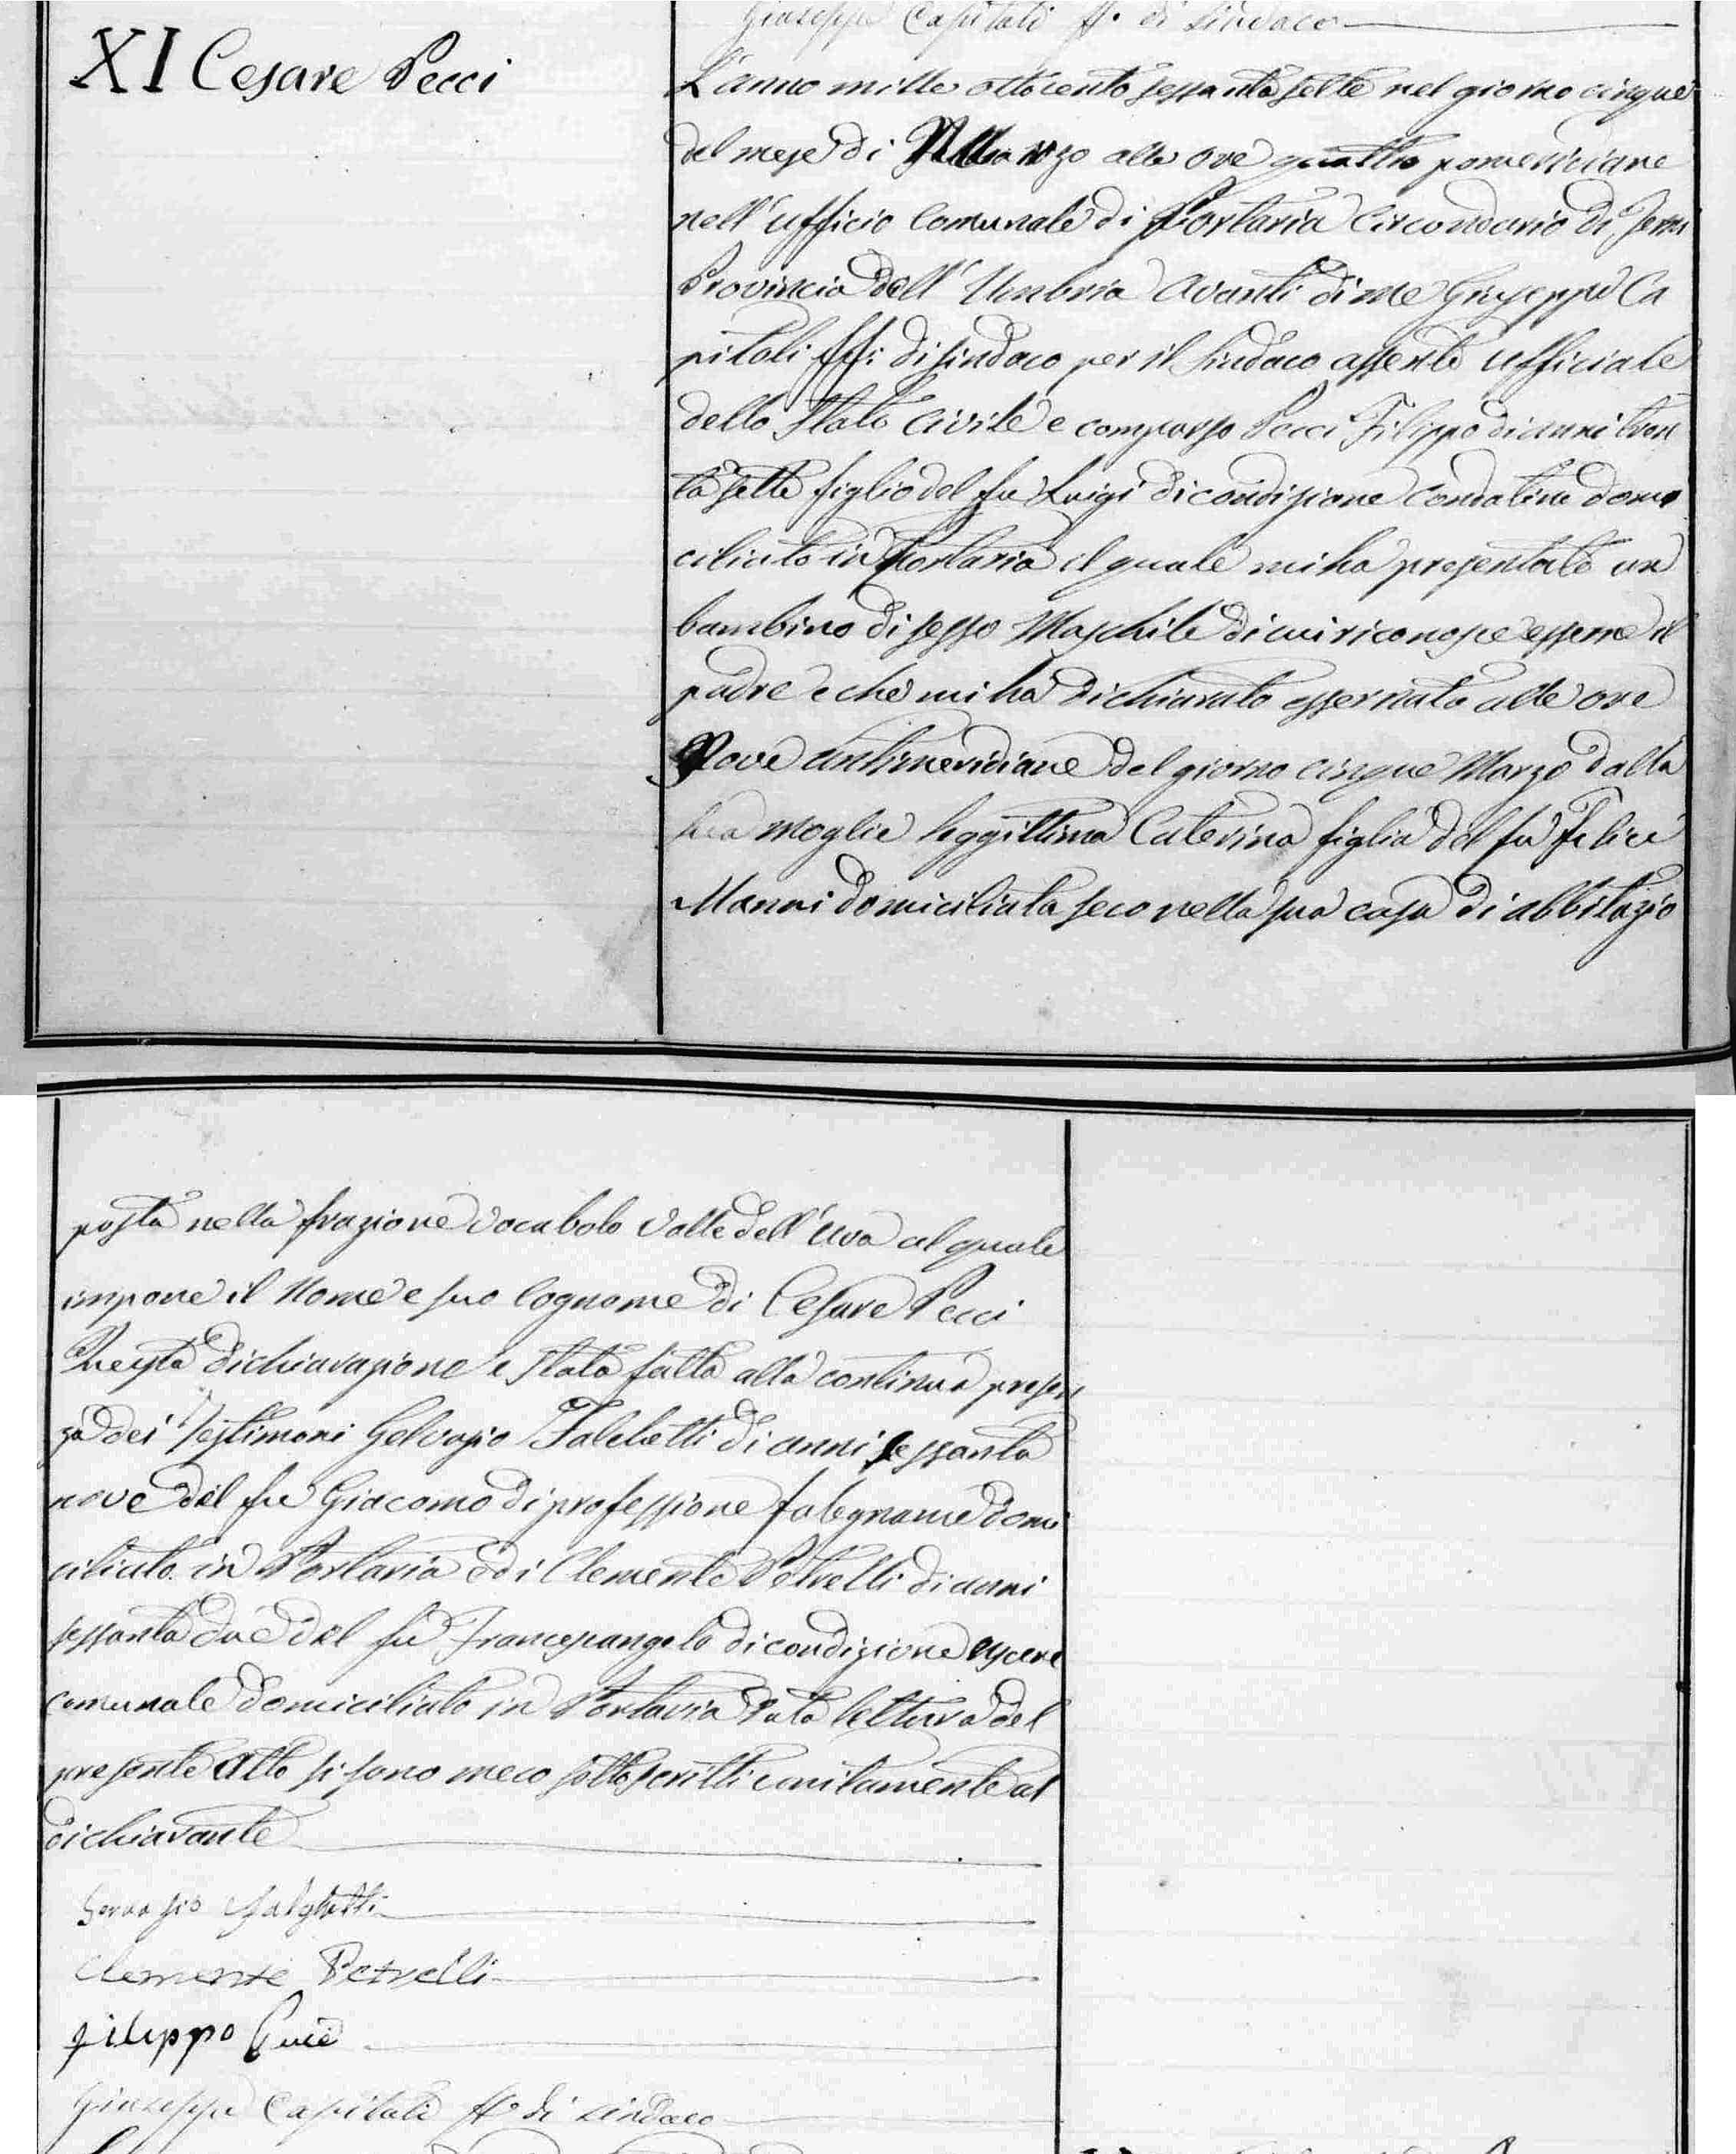 Giuseppe Capitali ff. di sindaco
XI Cesare Pecci
L'anno mille ottocento sessanta sette nel giorno cinque
del mese di Marzo alle ore quattro pomeridiane
nell'ufficio Comunale di Portaria Circondario di Terni
Provincia dell'Umbria Avanti di me Giuseppe Ca
pitali ff: di sindaco per il Sindaco assente ufficiale
dello Stato Civile e comparso Pecci Filippo di anni tren
ta sette figlio del fu Luigi di condizione Contatino domi
ciliato in Portaria il quale mi ha presentato un
bambino di sesso Maschile di cui riconosce esserne il
padre e che mi ha dichiarato esser nato alle ore
Nove antimeridiane del giorno cinque Marzo dalla
sua moglie leggittima Caterina figlia del fu Felice
Manni domiciliata seco nella sua casa di abbitazio
posta nella frazione vocabolo Valle dell'Uva al quale
impone il Nome e suo Cognome di Cesare Pecci
Questa dichiarazione e stata fatta alla continua presen
za dei Testimoni Gelvasio Falchetti di anni sessanta
nove del fu Giacomo di professione falegname domi
ciliato in Portaria e di Clemente Petrelli di anni
sessanta due del fu Francescangelo di condizione uscere
comunale domiciliato in Portaria Data lettura del
presente atto si sono meco sottoscritti unitamente al
dichiarante
Gervasio Falghetti
Clemente Petrelli
filippo
Giuseppe Capitali ff. di sindaco